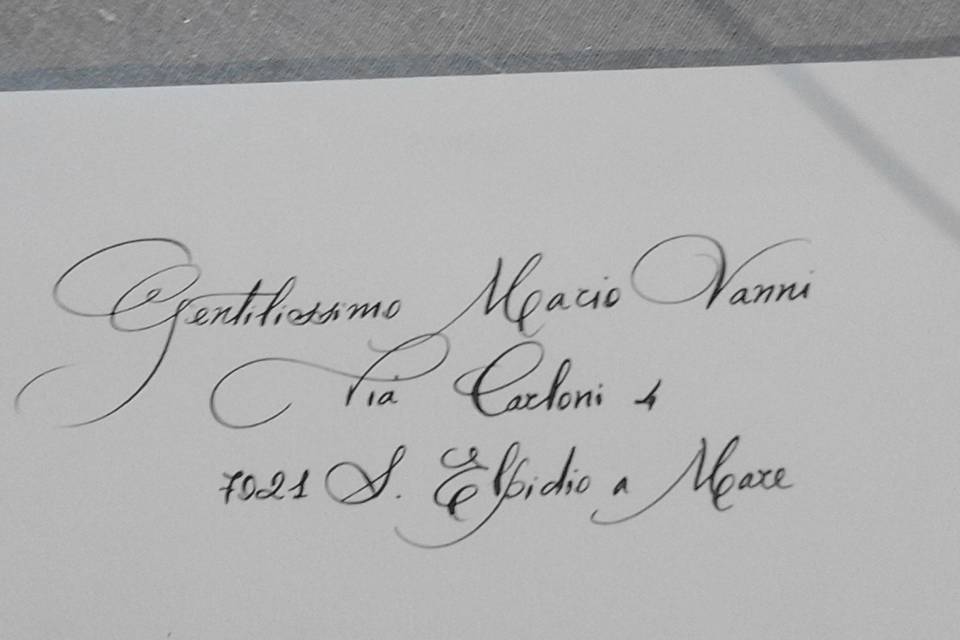 Gentilissimo Mario Vanni
Via Carloni 4
7021 S. Elpidio a Mare